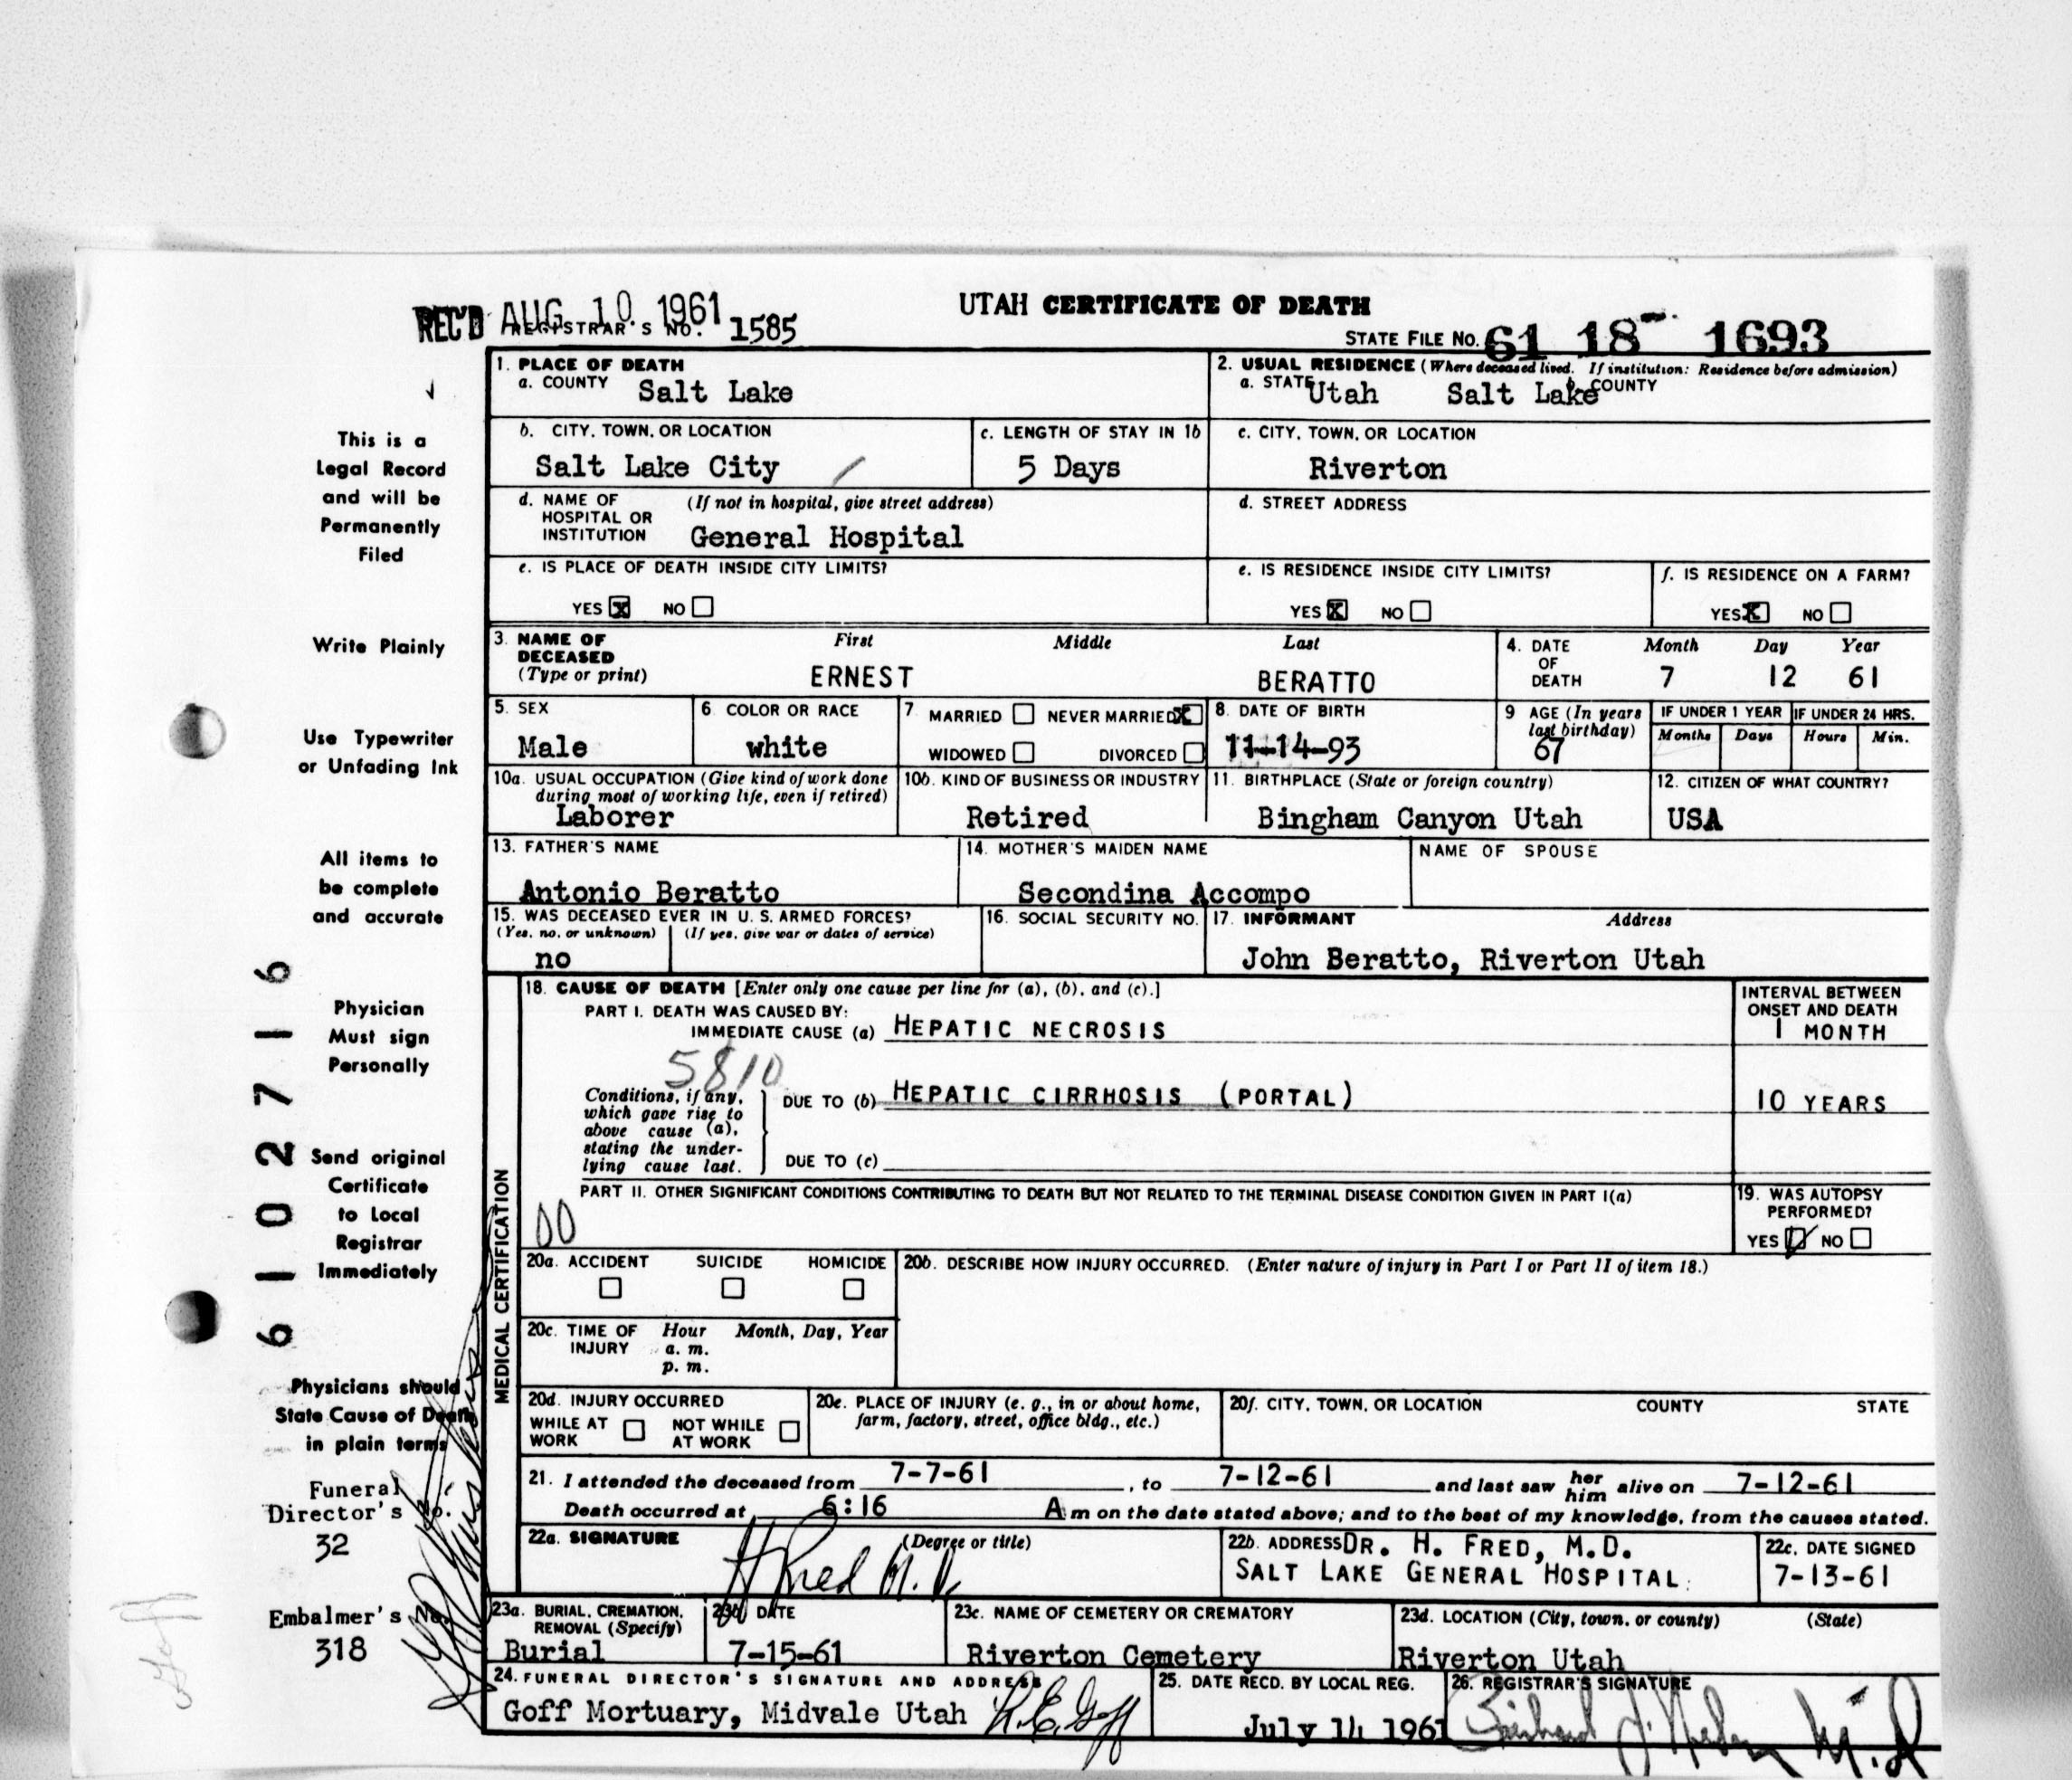 UTAH CERTIFICATE OF DEATH
REC'D AUG 10 1961
REGISTRAR'S NO. 1585
STATE FILE NO. 61 18 1693
1. PLACE OF DEATH
a. COUNTY Salt Lake
2. USUAL RESIDENCE (Where deceased lived. If institution: Residence before admission)
a. STATE Utah Salt Lake b. COUNTY
b. CITY, TOWN, OR LOCATION
Salt Lake City
c. LENGTH OF STAY IN 1b
5 Days
c. CITY, TOWN, OR LOCATION
Riverton
d. NAME OF HOSPITAL OR INSTITUTION (If not in hospital, give street address)
General Hospital
d. STREET ADDRESS
e. IS PLACE OF DEATH INSIDE CITY LIMITS?
YES X NO
e. IS RESIDENCE INSIDE CITY LIMITS?
YES X NO
f. IS RESIDENCE ON A FARM?
YES X NO
3. NAME OF DECEASED (Type or print)
First Middle Last
ERNEST BERATTO
4. DATE OF DEATH
Month Day Year
7 12 61
5. SEX
Male
6. COLOR OR RACE
white
7. MARRIED NEVER MARRIED X
WIDOWED DIVORCED
8. DATE OF BIRTH
11-14-93
9. AGE (In years last birthday)
67
IF UNDER 1 YEAR
Months Days
IF UNDER 24 HRS.
Hours Min.
10a. USUAL OCCUPATION (Give kind of work done during most of working life, even if retired)
Laborer
10b. KIND OF BUSINESS OR INDUSTRY
Retired
11. BIRTHPLACE (State or foreign country)
Bingham Canyon Utah
12. CITIZEN OF WHAT COUNTRY?
USA
13. FATHER'S NAME
Antonio Beratto
14. MOTHER'S MAIDEN NAME
Secondina Accompo
NAME OF SPOUSE
15. WAS DECEASED EVER IN U. S. ARMED FORCES?
(Yes, no, or unknown) (If yes, give war or dates of service)
no
16. SOCIAL SECURITY NO.
17. INFORMANT Address
John Beratto, Riverton Utah
MEDICAL CERTIFICATION
18. CAUSE OF DEATH [Enter only one cause per line for (a), (b), and (c).]
PART I. DEATH WAS CAUSED BY:
IMMEDIATE CAUSE (a) HEPATIC NECROSIS
INTERVAL BETWEEN ONSET AND DEATH
1 MONTH
5810
Conditions, if any, which gave rise to above cause (a), stating the underlying cause last.
DUE TO (b) HEPATIC CIRRHOSIS (PORTAL)
10 YEARS
DUE TO (c)
PART II. OTHER SIGNIFICANT CONDITIONS CONTRIBUTING TO DEATH BUT NOT RELATED TO THE TERMINAL DISEASE CONDITION GIVEN IN PART I(a)
00
19. WAS AUTOPSY PERFORMED?
YES NO
20a. ACCIDENT SUICIDE HOMICIDE
20b. DESCRIBE HOW INJURY OCCURRED. (Enter nature of injury in Part I or Part II of item 18.)
20c. TIME OF INJURY Hour Month, Day, Year
a. m.
p. m.
20d. INJURY OCCURRED
WHILE AT WORK NOT WHILE AT WORK
20e. PLACE OF INJURY (e. g., in or about home, farm, factory, street, office bldg., etc.)
20f. CITY, TOWN, OR LOCATION COUNTY STATE
21. I attended the deceased from 7-7-61, to 7-12-61 and last saw her him alive on 7-12-61
Death occurred at 6:16 A m on the date stated above; and to the best of my knowledge, from the causes stated.
22a. SIGNATURE (Degree or title)
H Fred M.D.
22b. ADDRESS DR. H. FRED, M.D.
SALT LAKE GENERAL HOSPITAL
22c. DATE SIGNED
7-13-61
23a. BURIAL, CREMATION, REMOVAL (Specify)
Burial
23b. DATE
7-15-61
23c. NAME OF CEMETERY OR CREMATORY
Riverton Cemetery
23d. LOCATION (City, town, or county) (State)
Riverton Utah
24. FUNERAL DIRECTOR'S SIGNATURE AND ADDRESS
Goff Mortuary, Midvale Utah R.E. Goff
25. DATE RECD. BY LOCAL REG.
July 14 1961
26. REGISTRAR'S SIGNATURE
This is a
Legal Record
and will be
Permanently
Filed
Write Plainly
Use Typewriter
or Unfading Ink
All items to
be complete
and accurate
Physician
Must sign
Personally
Send original
Certificate
to Local
Registrar
Immediately
Physicians should
State Cause of Death
in plain terms
Funeral
Director's No.
32
Embalmer's No.
318
Goff
61 02716